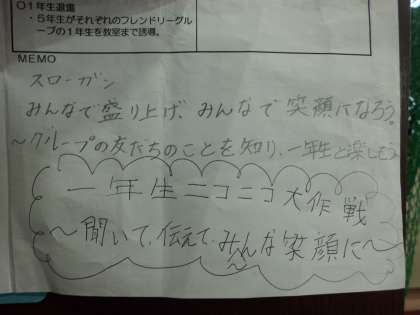 〇1年生退場
・5年生がそれぞれのフレンドリーグル
ープの1年生を教室まで誘導。
MEMO
スローガン
みんなで盛り上げ、みんなで笑顔になろう。
〜グループの友だちのことを知り、一年生と楽しもう〜
一年生ニコニコ大作戦
〜聞いて、伝えて、みんな笑顔に〜